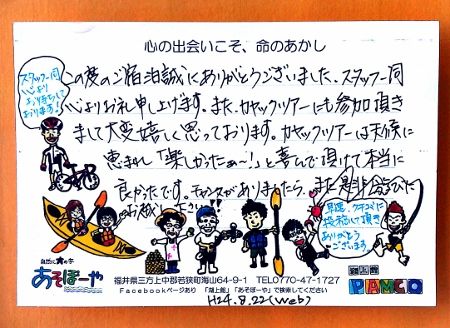 心の出会いこそ、命のあかし
スタッフ一同
心より
お待ちして
おります!
この度のご宿泊誠にありがとうございました。スタッフ一同
心よりお礼申し上げます。また、カヤックツアーにも参加頂き
まして大変嬉しく思っております。カヤックツアーは天候に
恵まれ「楽しかったぁ~!」と喜んで頂けて本当に
良かったです。チャンスがありましたら、また是非遊びに
お越しくださいね
早速、クチコミに
投稿して頂き
ありがとう
ございます
自然に
あそぼーや
福井県三方上中郡若狭町海山64-9-1 TEL0770-47-1727
Facebookページあり 「湖上館」「あそぼーや」で検索してください
湖上館
PAMCO
H24.8.22(Web)